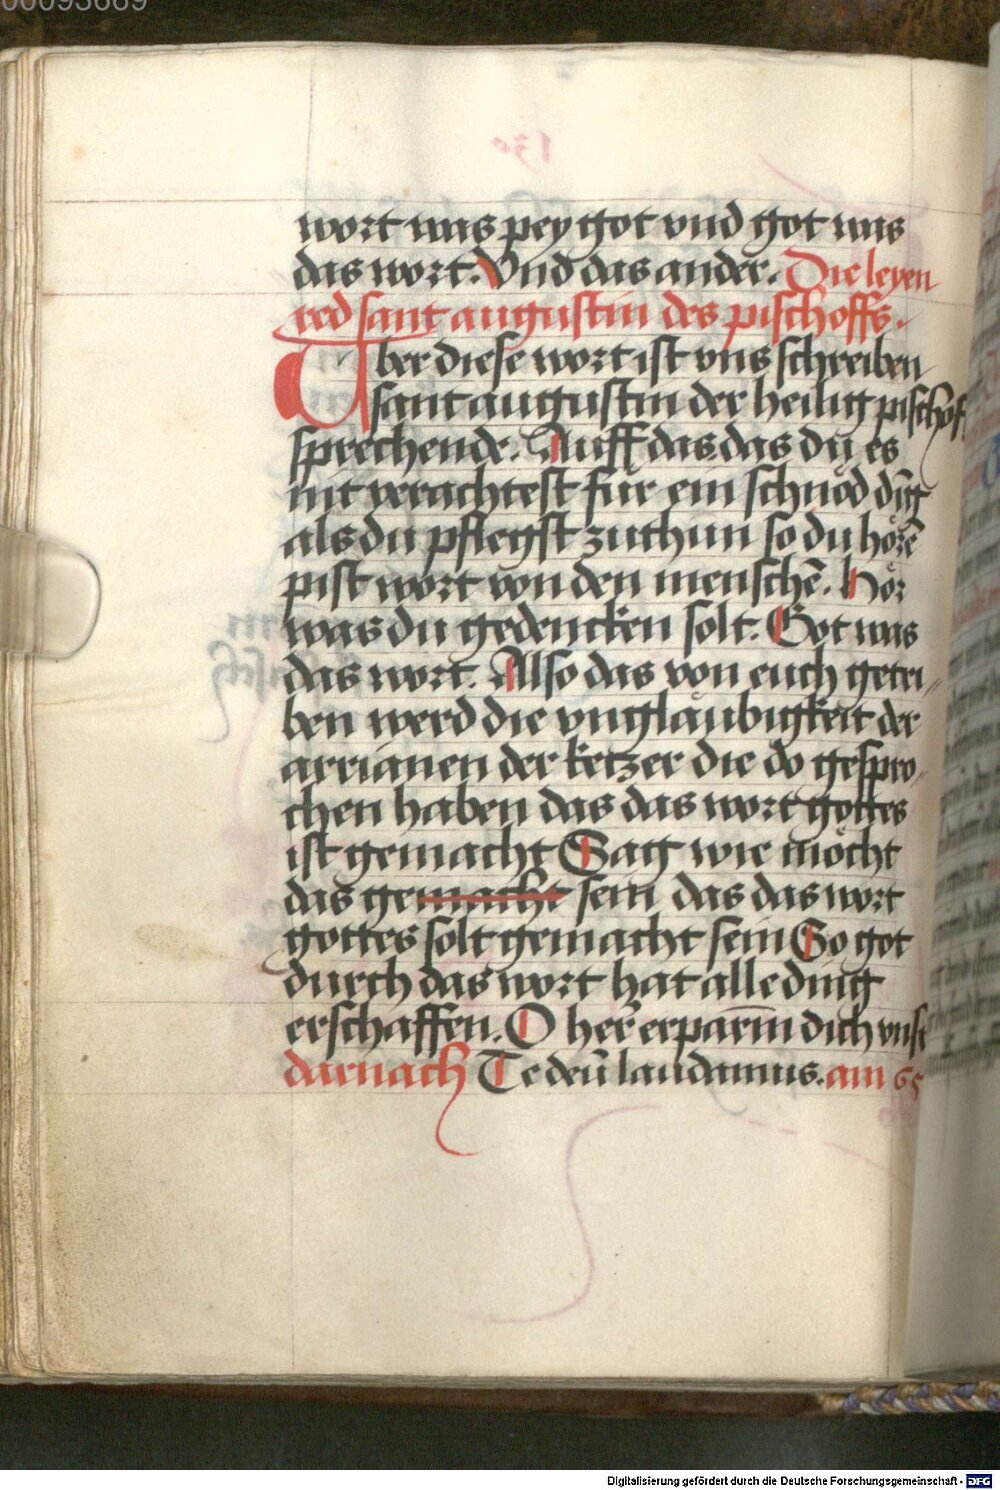 00093669
wort was pey got vnd got was
das wort. Vnd das ander. Die leyen
red sant augustin des pischoffs.
Uber diese wort ist vns schreiben
sant augustin der heilig pischof
sprechende. Auff das das du es
nit verachtest fur ein schnöd dīg
als du pflegst zuthun so du hörē
pist wort von den menschē. Hör
was du gedencken solt. Got was
das wort. Also das von euch getri
ben werd die vnglaubigkeit der
arrianen der ketzer die do gespro
chen haben das das wort gottes
ist gemacht Sag wie möcht
das gemacht sein das das wort
gottes solt gemacht sein So got
durch das wort hat alle ding
erschaffen. O her erparm dich vns
darnach Te deū laudamus. am 65
Digitalisierung gefördert durch die Deutsche Forschungsgemeinschaft - DFG